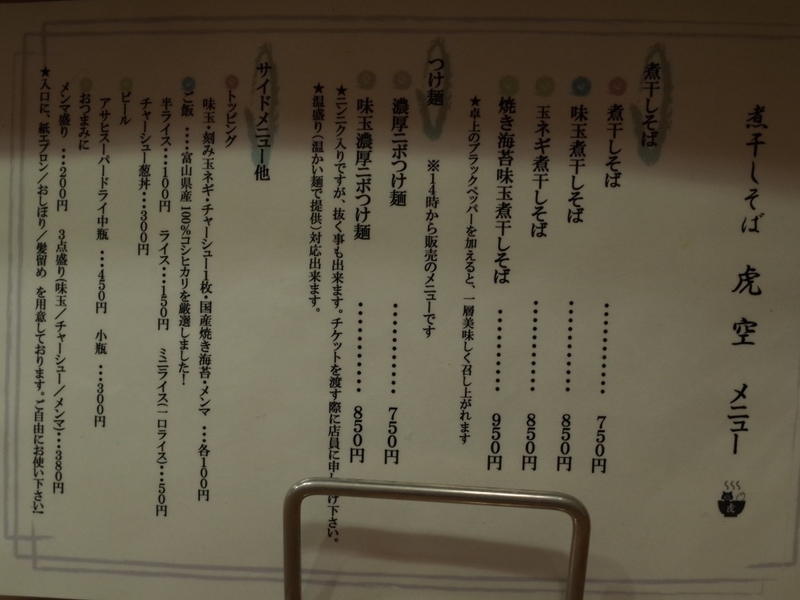 煮干しそば 虎空 メニュー
煮干しそば
煮干しそば ・・・・・・・・・・・・ 750円
味玉煮干しそば ・・・・・・・・・・・・ 850円
玉ネギ煮干しそば ・・・・・・・・・・・・ 850円
焼き海苔味玉煮干しそば ・・・・・・・・・・ 950円
★卓上のブラックペッパーを加えると、一層美味しく召し上がれます
つけ麺 ※14時から販売のメニューです
濃厚ニボつけ麺 ・・・・・・・・・・・・ 750円
味玉濃厚ニボつけ麺 ・・・・・・・・・・・・ 850円
★ニンニク入りですが、抜く事も出来ます。チケットを渡す際に店員に申し付け下さい。
★温盛り(温かい麺で提供)対応出来ます。
サイドメニュー他
トッピング
味玉・刻み玉ネギ・チャーシュー1枚・国産焼き海苔・メンマ ・・・各100円
ご飯 ・・・・富山県産100%コシヒカリを厳選しました!
半ライス・・・100円 ライス・・・150円 ミニライス(一口ライス)・・・50円
チャーシュー葱丼・・・300円
ビール
アサヒスーパードライ中瓶 ・・・450円 小瓶 ・・・300円
おつまみに
メンマ盛り ・・・200円 3点盛り(味玉/チャーシュー/メンマ)・・・380円
★入口に、紙エプロン/おしぼり/髪留め を用意しております。ご自由にお使い下さい!